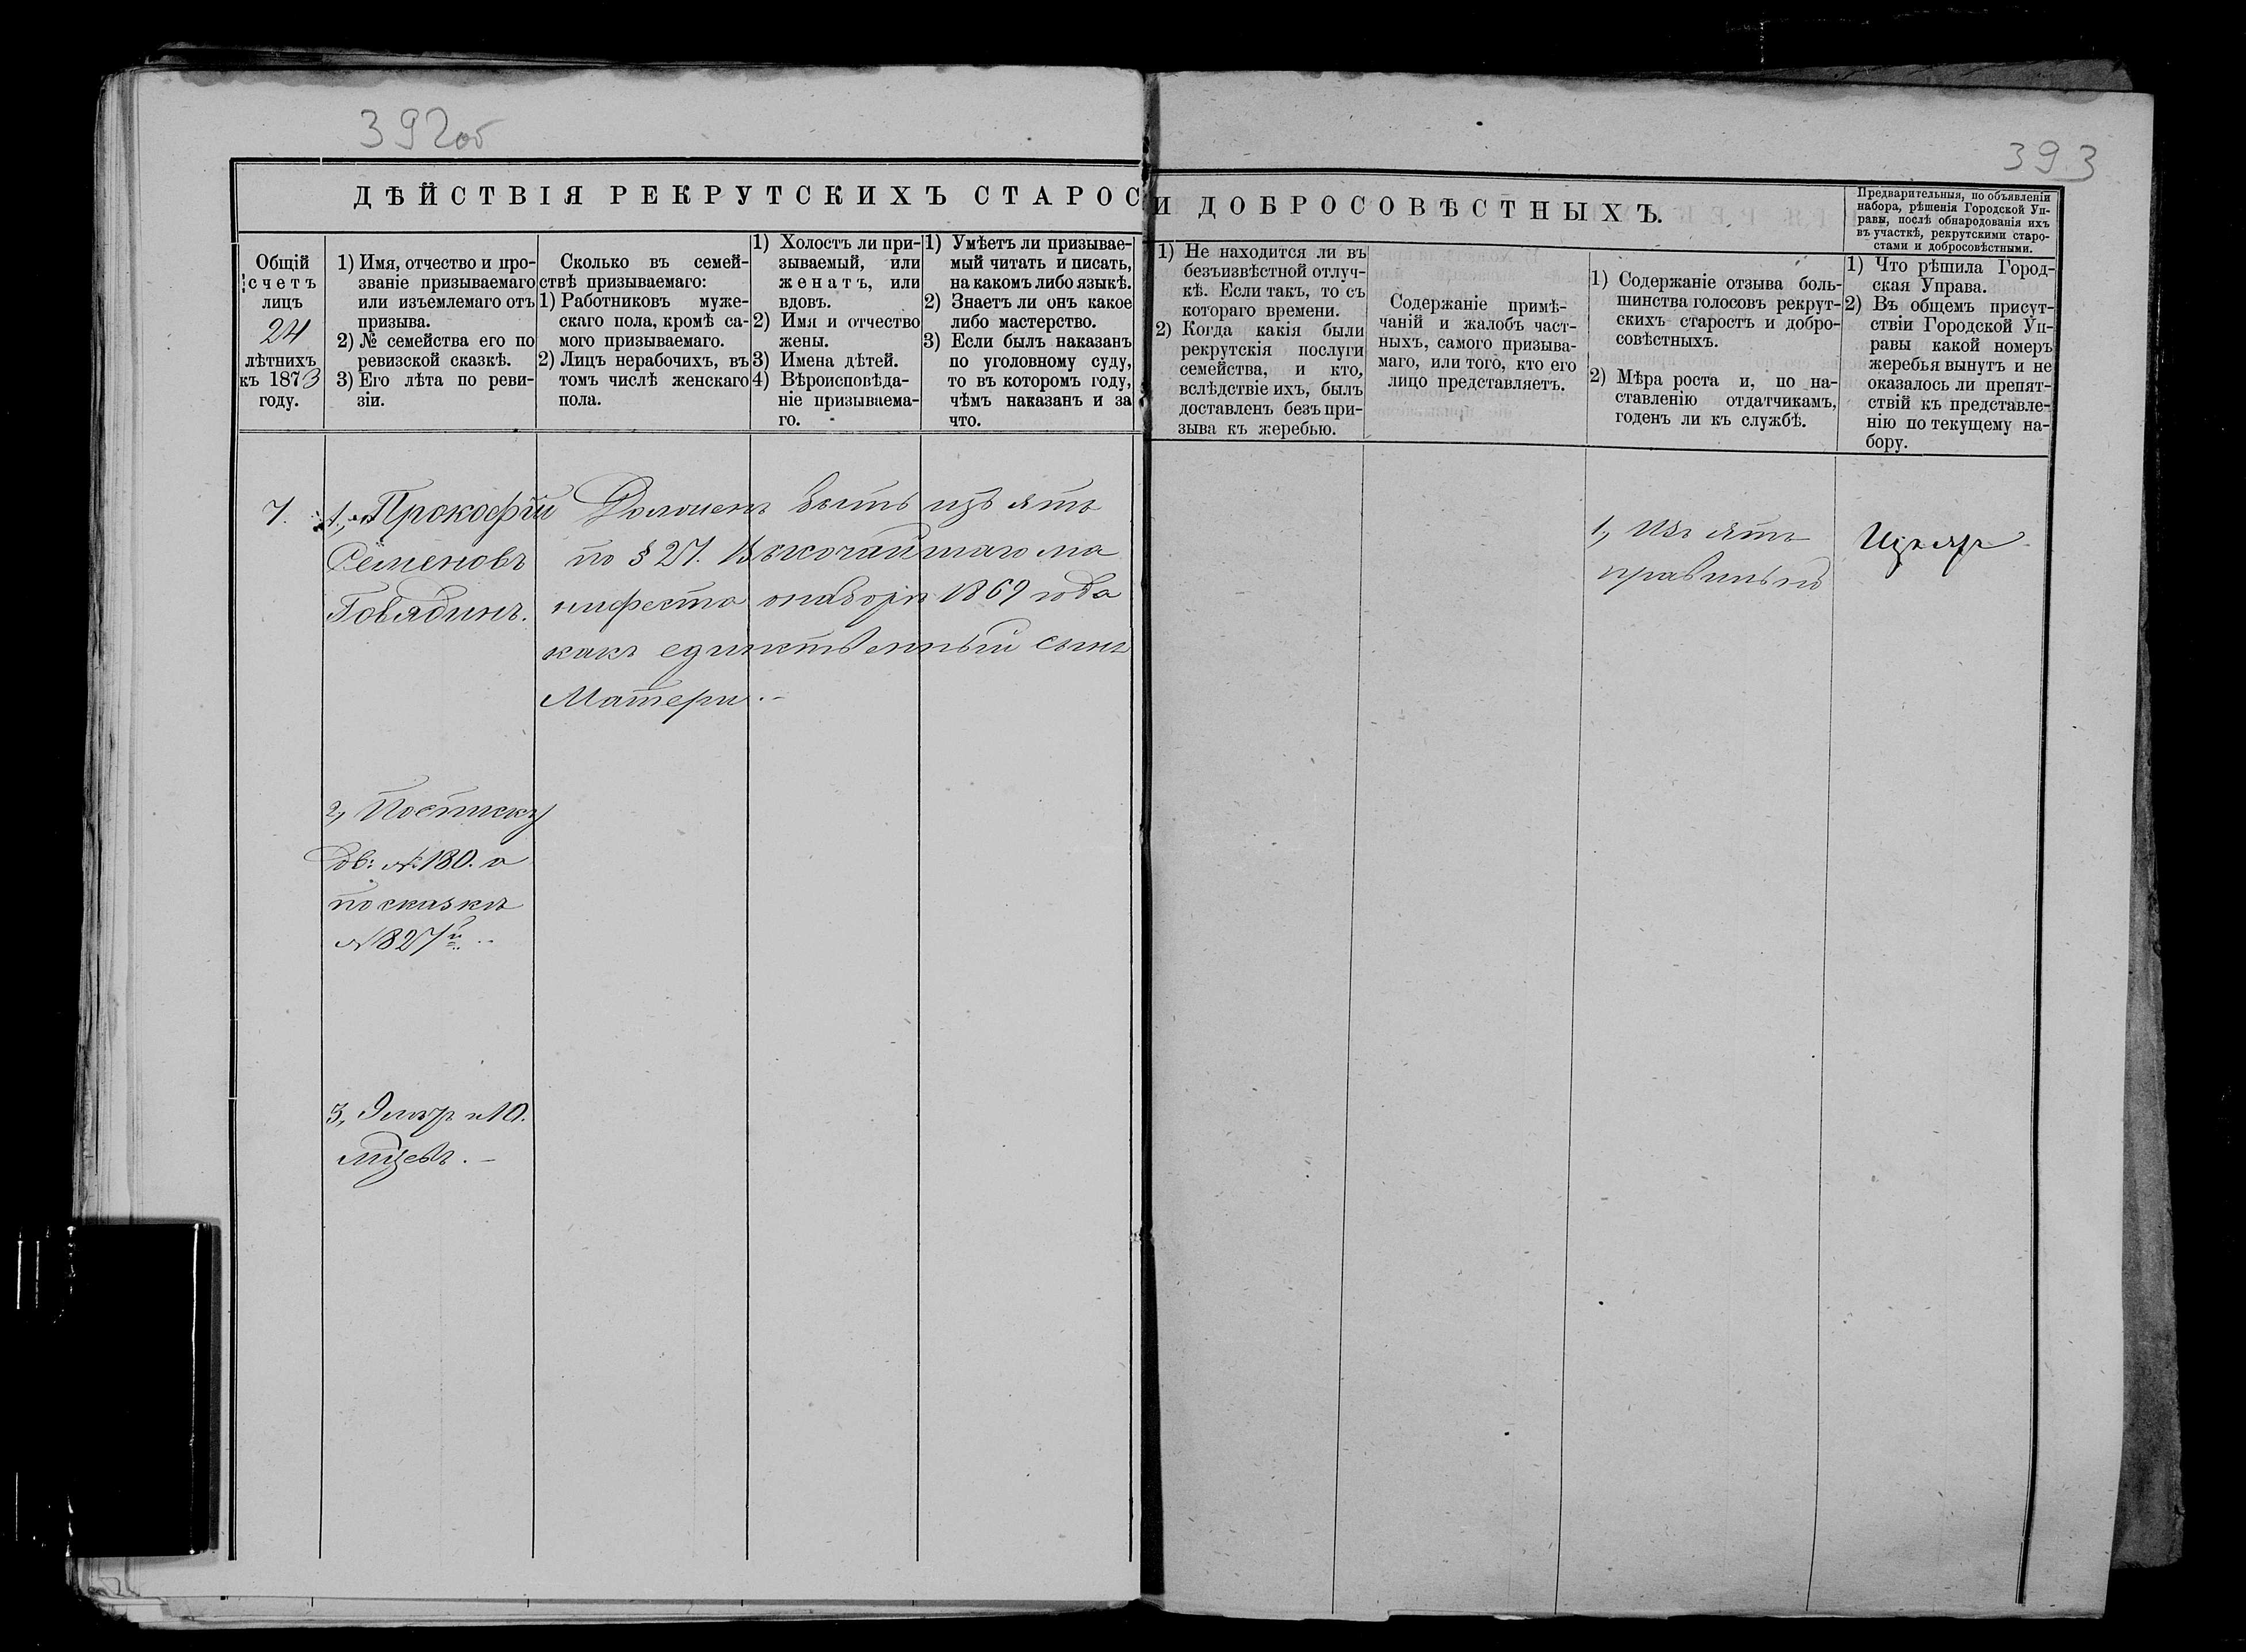 392об
393
ДѢЙСТВІЯ РЕКРУТСКИХЪ СТАРОС
И ДОБРОСОВѢСТНЫХЪ.
Предварительныя, по объявленіи
набора, рѣшенія Городской Уп-
равы, послѣ обнародованія ихъ
въ участкѣ, рекрутскими старо-
стами и добросовѣстными.
Общій
счетъ
лицъ
24
лѣтнихъ
къ 1873
году.
1) Имя, отчество и про-
званіе призываемаго
или изъемлемаго отъ
призыва.
2) № семейства его по
ревизской сказкѣ.
3) Его лѣта по реви-
зіи.
Сколько въ семей-
ствѣ призываемаго:
1) Работниковъ муже-
скаго пола, кромѣ са-
мого призываемаго.
2) Лицъ нерабочихъ, въ
томъ числѣ женскаго
пола.
1) Холостъ ли при-
зываемый, или
женатъ, или
вдовъ.
2) Имя и отчество
жены.
3) Имена дѣтей.
4) Вѣроисповѣда-
ніе призываема-
го.
1) Умѣетъ ли призывае-
мый читать и писать,
на какомъ либо языкѣ.
2) Знаетъ ли онъ какое
либо мастерство.
3) Если былъ наказанъ
по уголовному суду,
то въ которомъ году,
чѣмъ наказанъ и за
что.
1) Не находится ли въ
безъизвѣстной отлуч-
кѣ. Если такъ, то съ
котораго времени.
2) Когда какія были
рекрутскія послуги
семейства, и кто,
вслѣдствіе ихъ, былъ
доставленъ безъ при-
зыва къ жеребью.
Содержаніе примѣ-
чаній и жалобъ част-
ныхъ, самого призыва-
маго, или того, кто его
лицо представляетъ.
1) Содержаніе отзыва боль-
шинства голосовъ рекрут-
скихъ старостъ и добро-
совѣстныхъ.
2) Мѣра роста и, по на-
ставленію отдатчикамъ,
годенъ ли къ службѣ.
1) Что рѣшила Город-
ская Управа.
2) Въ общемъ присут-
ствіи Городской Уп-
равы какой номеръ
жеребья вынутъ и не
оказалось ли препят-
ствій къ представле-
нію по текущему на-
бору.
7.
1, Прокофій
Семеновъ
Говядинъ.
Долженъ быть изъятъ
по § 27. Высочайшаго ма
нифеста о наборѣ 1869 года
какъ единственный сынъ
Матери. –
2, По списку
дв: № 180. а
по сказкѣ
№ 827й.
3, 9 лѣтъ и 10.
мѣсяцевъ. –
1, Изъятъ
правильно
Изъятъ